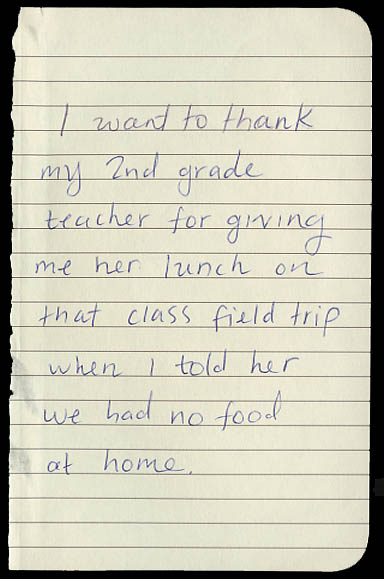 I want to thank
my 2nd grade
teacher for giving
me her lunch on
that class field trip
when I told her
we had no food
at home.